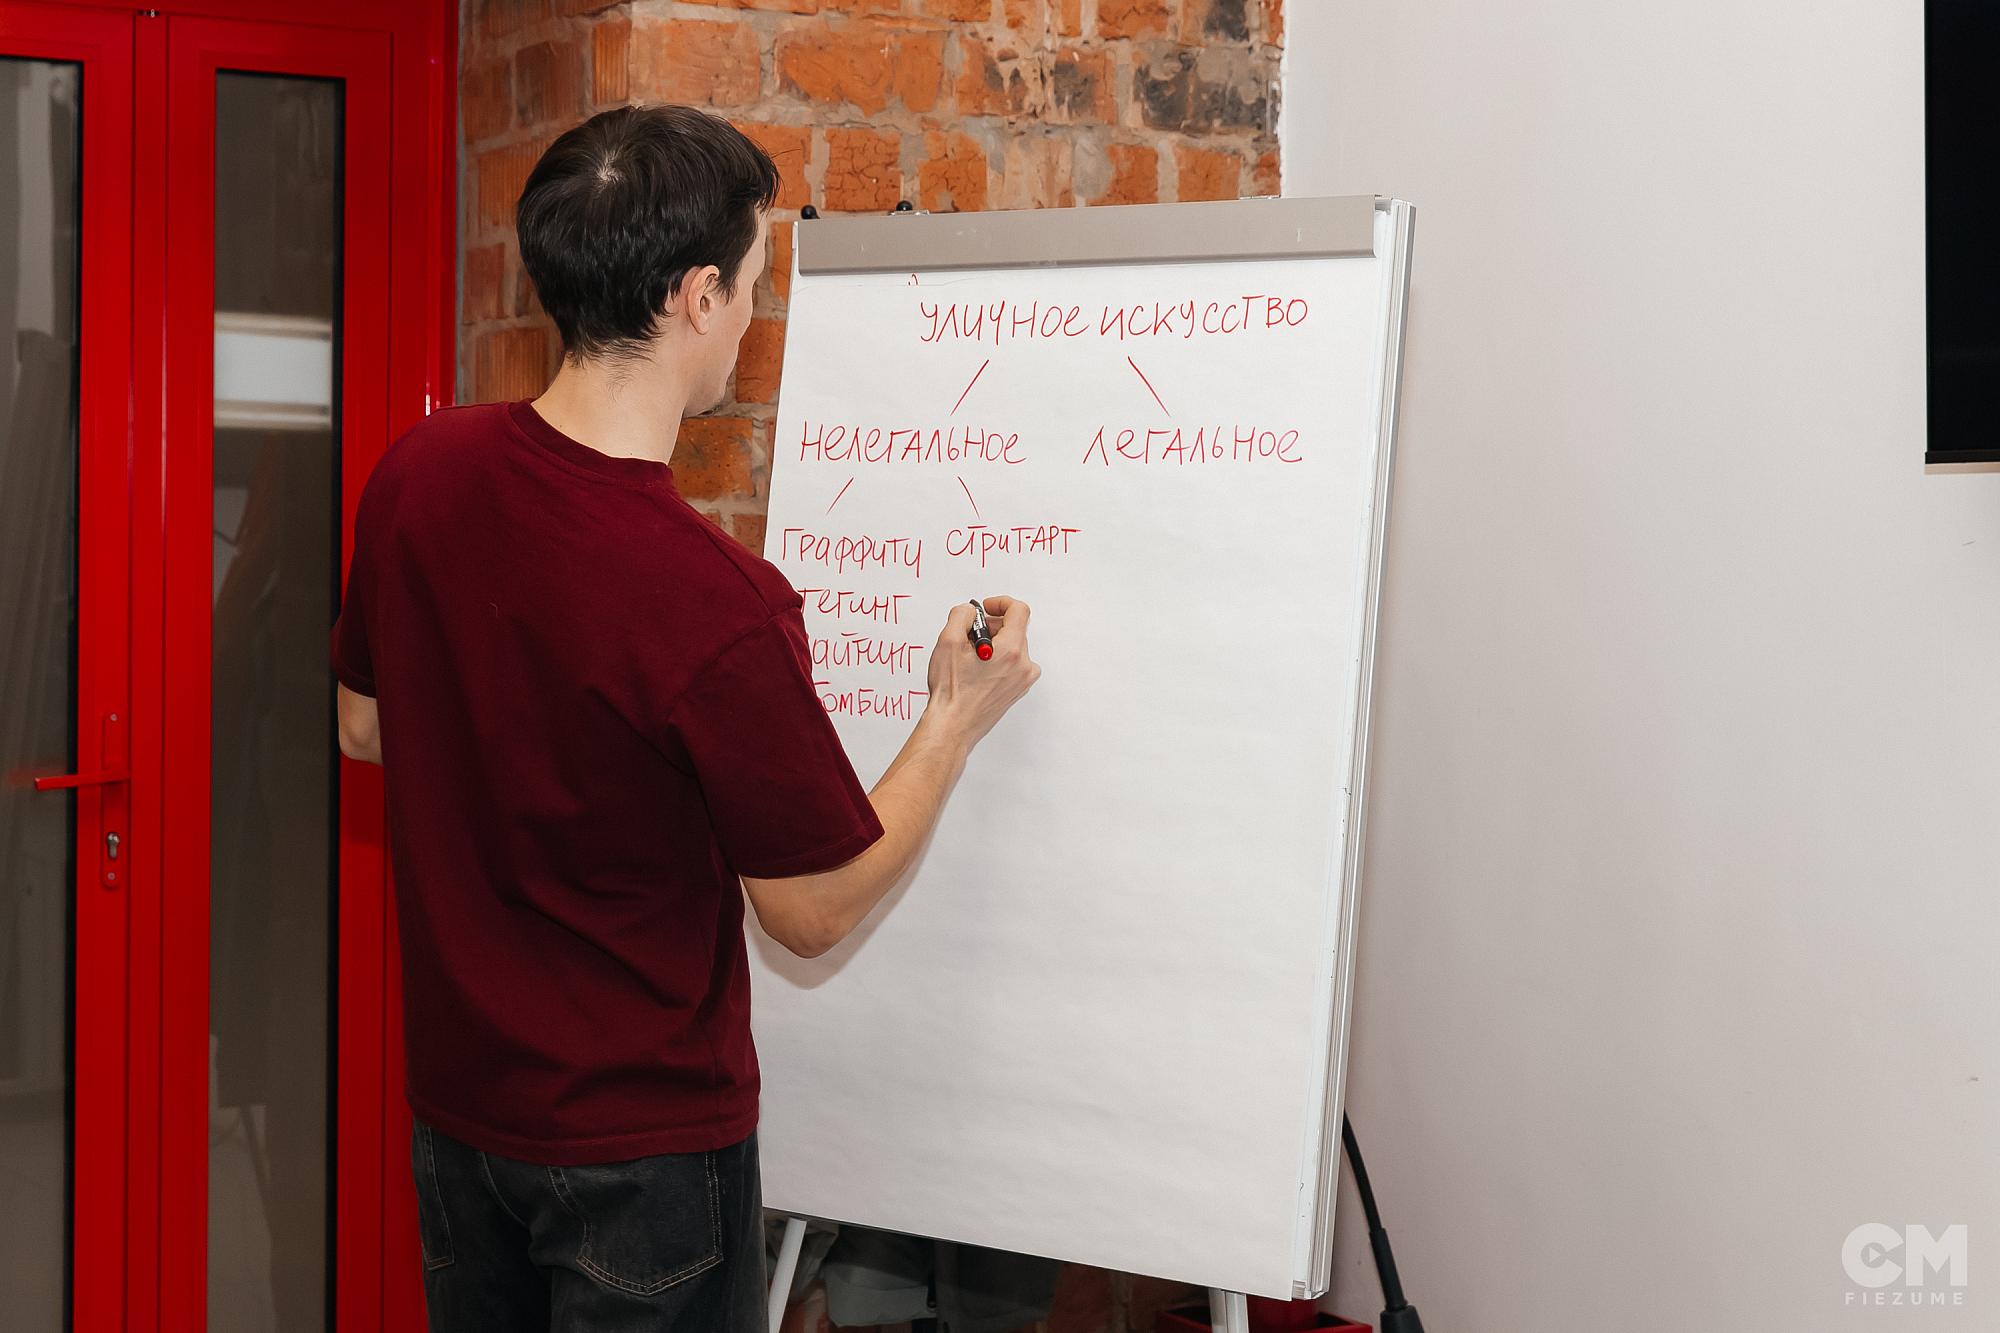 уличное искусство
нелегальное легальное
граффити стрит-арт
тегинг
райтинг
бомбинг
CM
FIEZUME